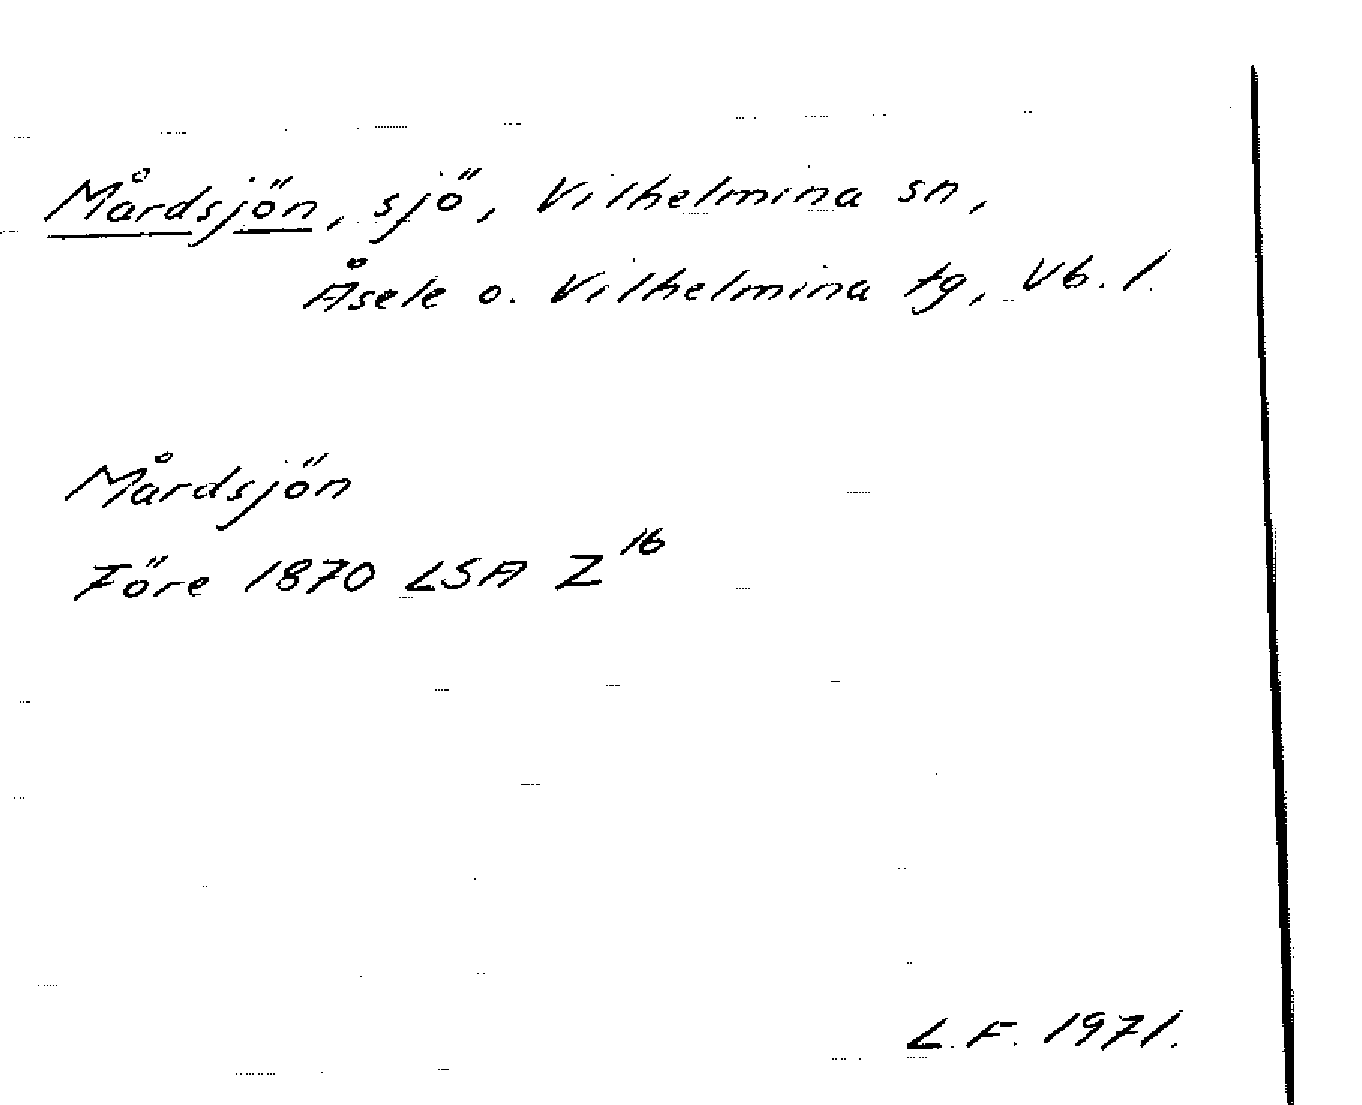 Mårdsjön, sjö, Vilhelmina sn,
Åsele o. Vilhelmina tg, Vb. l.
Mårdsjön
Före 1870 LSA Z16
L.F. 1971.